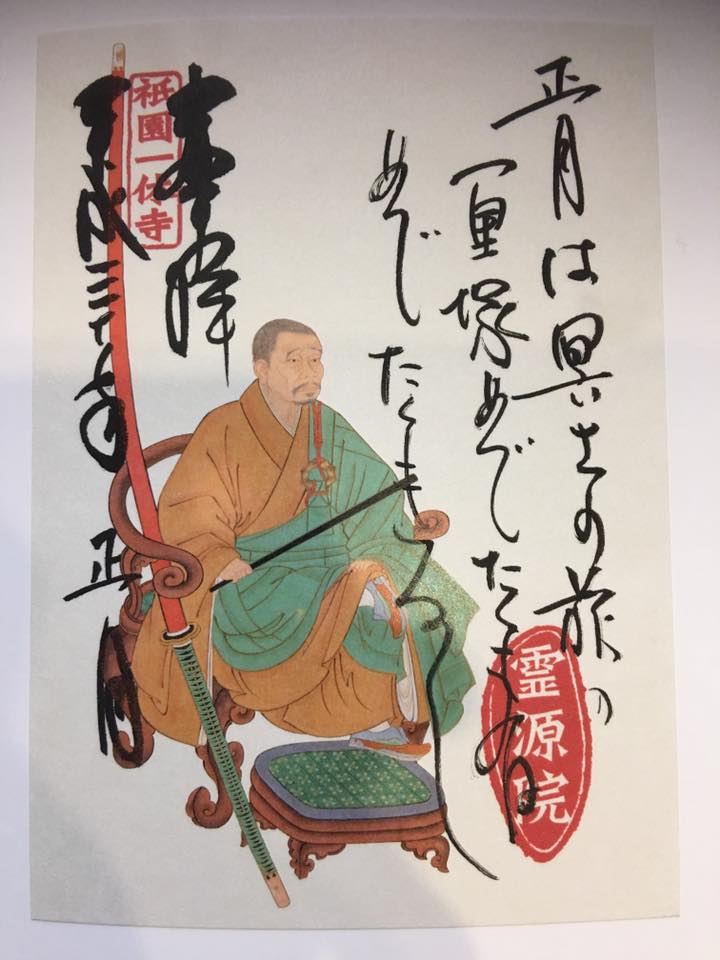 正月は冥土の旅の
一里塚めでたくもあり
めでたくもなし
霊源院
奉拝
祇園一休寺
平成三十年 正月